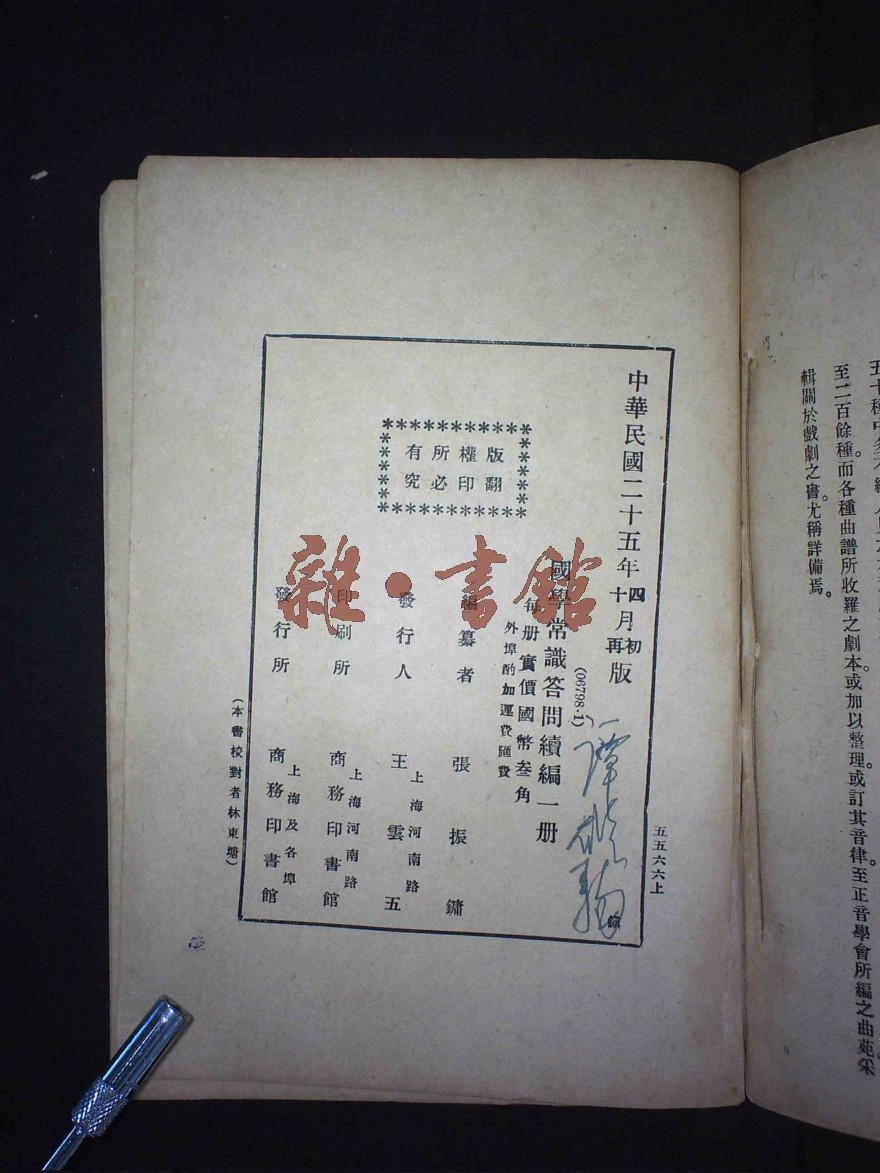 五五六六上
中華民國二十五年四月初版
十 再
(06798·1)
國學常識答問續編一册
每册實價國幣叁角
外埠酌加運費匯費
編纂者 張振鏞
發行人 王雲五
上海河南路
印刷所 商務印書館
上海河南路
發行所 商務印書館
上海及各埠
版權所有
翻印必究
(本書校對者林東塘)
雜·書館
至二百餘種。而各種曲譜所收羅之劇本。或加以整理。或訂其音律。至正音學會所編之曲苑。采
輯關於戲劇之書。尤稱詳備焉。